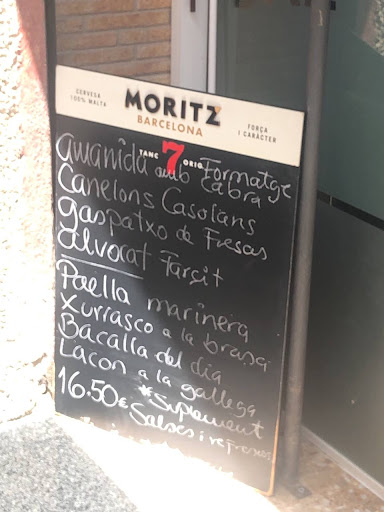 CERVESA
100% MALTA
MORITZ
BARCELONA
FORÇA
I CARÀCTER
TANC 7 ORIG
amanida amb Formatge
cabra
Canelons Casolans
gaspatxo de Fresas
alvocat Farçit
Paella marinera
Xurrasco a la brasa
Bacalla del dia
Lacon a la gallega
16.50€ *Suplement
Salses i refrescos